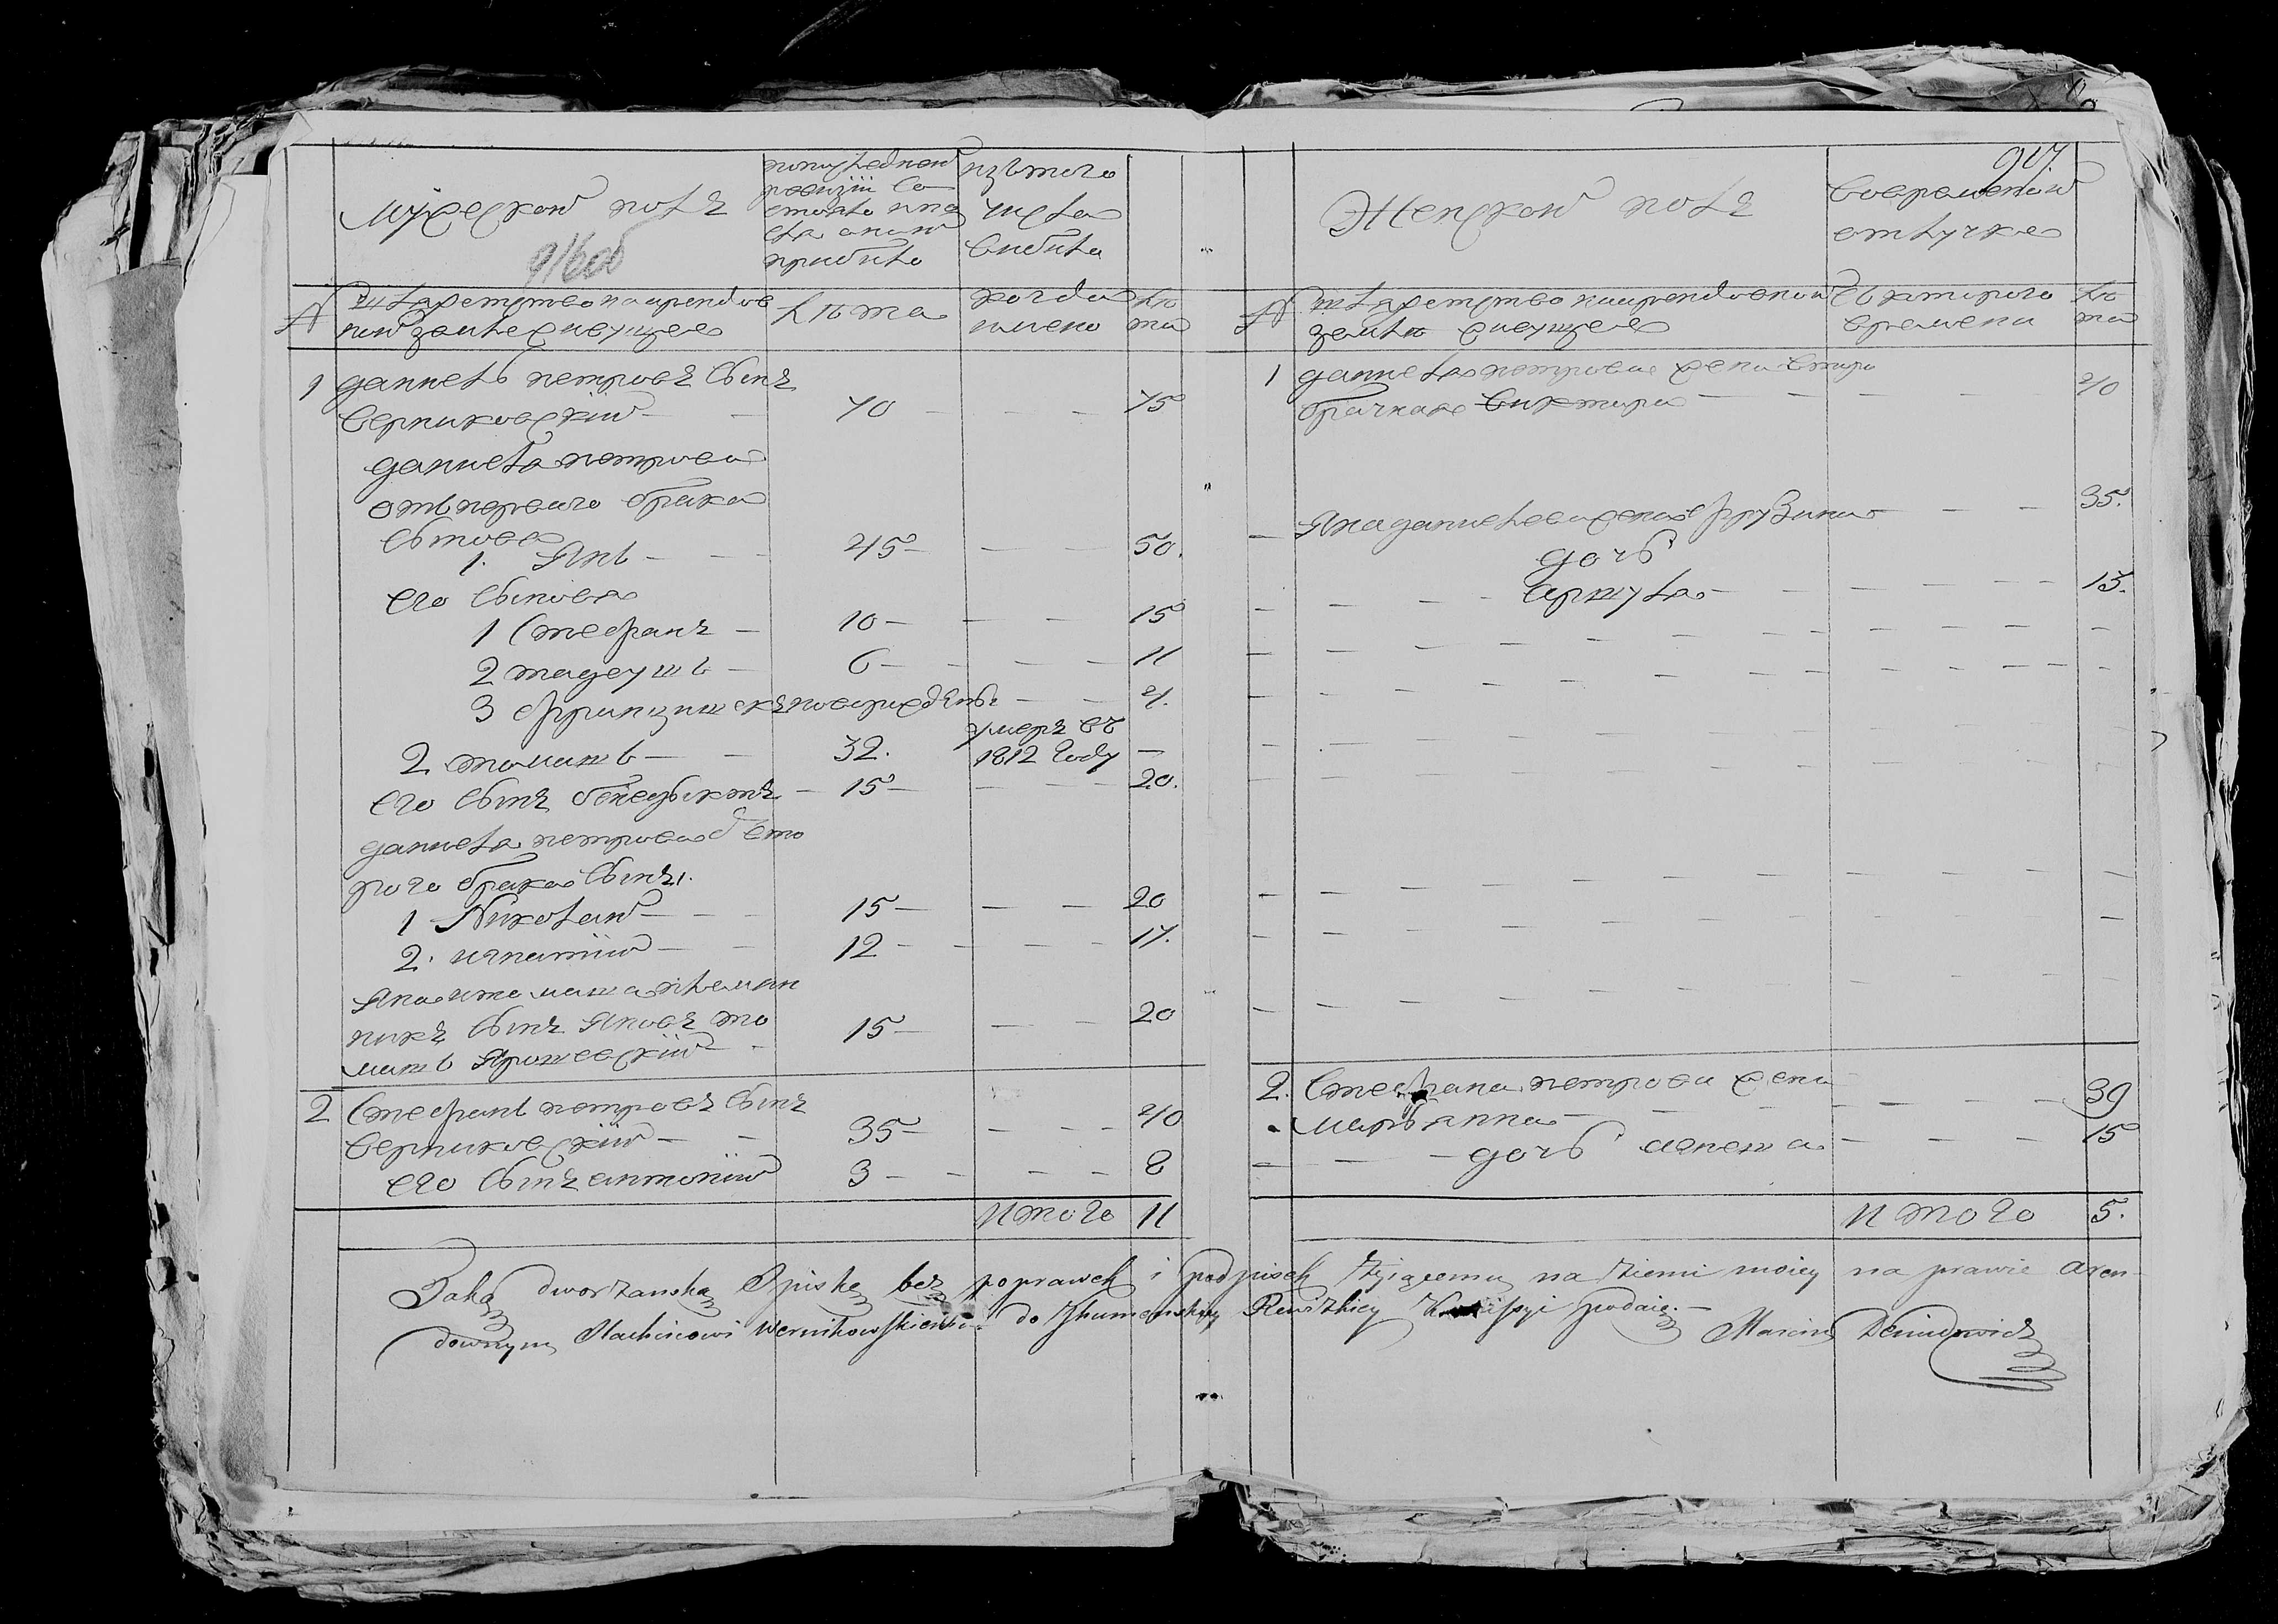 Мужескои полъ
попоследнеи
ревизіи со
стояло и по
сля онои
прибыло
изътого
числа
выбыло
№
шляхетство на арендов
нои земле живущее
лѣта
когда
имено
лѣ
та
1 даниель петровъ сынъ
верниковскіи — 70 — — 75
даниеля петрова
отъ первого брака
сынове
1. Янъ — 45 — — 50.
его сынове
1 Стефанъ — 10 — — 15
2 тадеушъ — 6 — — 11
3 францишекъ новорожденъ — — 4.
2. томашъ — 32. умеръ въ 1812 году —
его сынъ бенедыктъ — 15 — — 20.
даниеля петрова з вто
рого брака сыны.
1 Николаи — 15 — — 20
2. игнатіи — 12 — — 17.
Яна и томаша племян
никъ сынъ Яновъ то
машъ Ярошевскіи — 15 — — 20
2 Стефанъ петровъ сынъ
верниковскіи — 35 — — 40
его сынъ антоніи 3 — — 8
Итого 11
907
Женскои полъ
вовременнои
отлучке
№
шляхетство наарендовнои
земле живущее
съ которого
времени
лѣ
та
1 даниеля петрова жена втора
брачная виктора — — 40
— Яна даниелева жена фрузына — — 35.
дочь
аршуля — — 13.
2. Стефана петрова жена
марьянна — — 39
дочь агнеша — — 15
Итого 5.
Taką dworzanską Spiskę bez poprawek i podpisek żyiącemu na ziemi moiey na prawie aren-
downym Szlachcicowi Wernikowskiemu do Jhumenskiey Rewizkiey Komissyi podaię. — Marcin